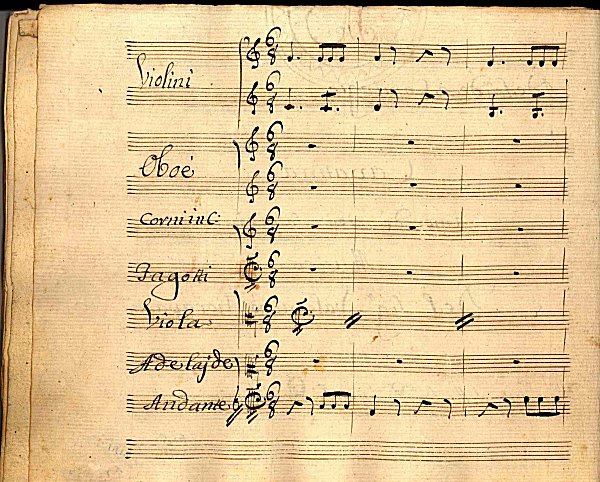 Violini
Oboé
Corni in C:
Fagotti
Viola
Adelajde
Andante